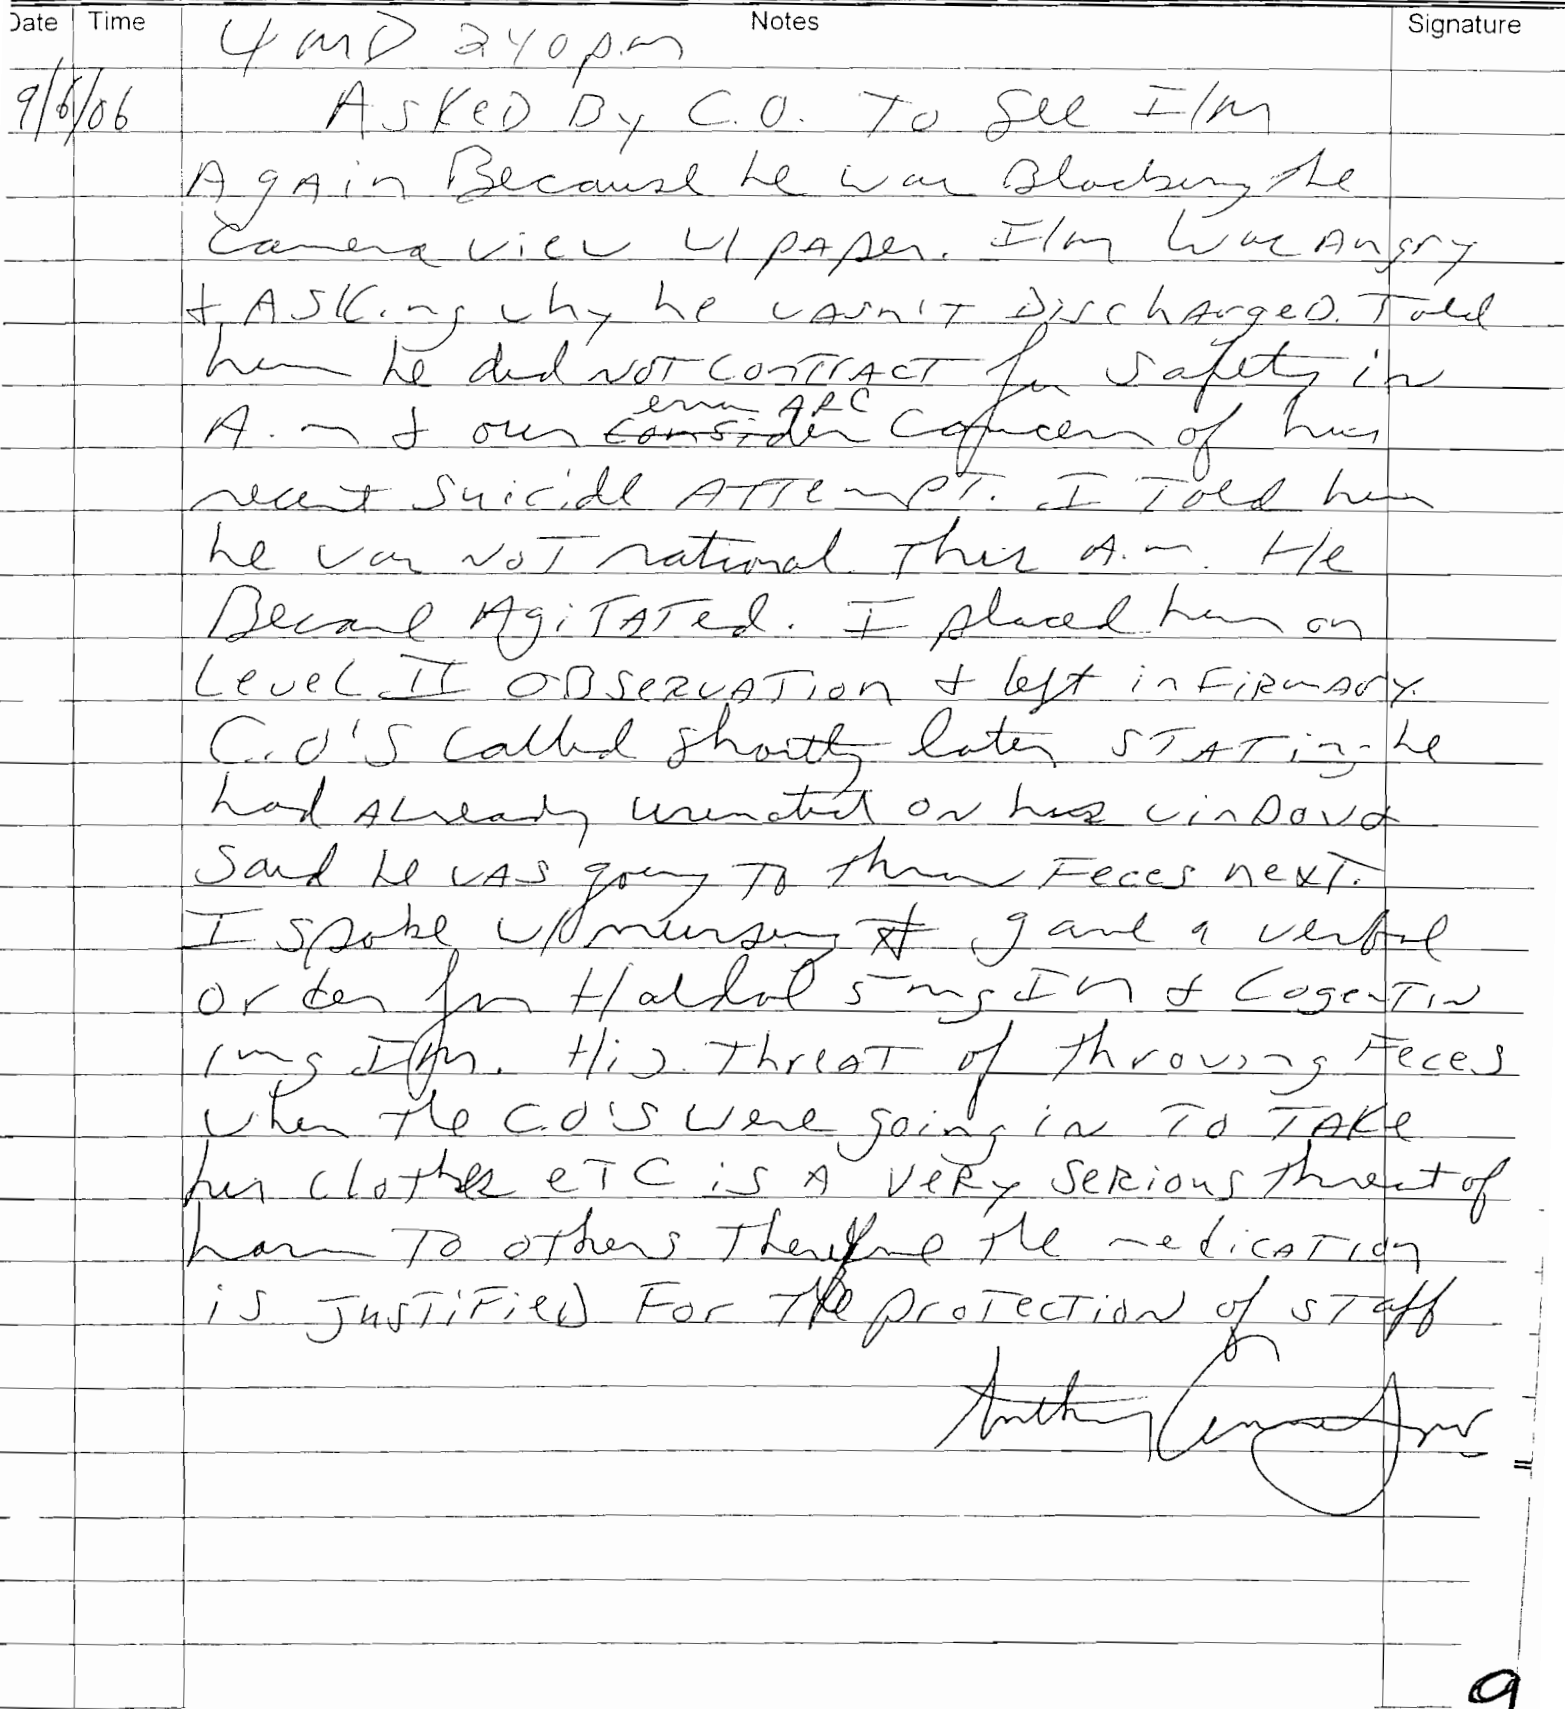 Date Time Notes Signature
4 MD 240 pm
9/6/06 Asked By C.O. To See I/M
Again Because he was Blocking the
Camera view w/ paper. I/m was Angry
+ Asking why he wasn't Discharged. Told
him he did NOT contract for safety in
A.m + our consider error ARC concern of his
recent suicide ATTempt. I Told him
he was NOT rational This A.m. He
Became AgiTATed. I placed him on
Level II OBSERVATION + left infirmary.
C.O'S called shortly later STATing he
had Already urinated on his window +
said he was going To throw Feces next.
I spoke w/ nursing + gave a verbal
order for Haldol 5 mg IM + CogenTin
1 mg I/m. His threAT of throwing Feces
when the C.O'S were going in To TAKe
his clothes eTC is A VeRy SeRious threat of
harm To others Therefore the medicATion
is JusTiFied For The proTecTion of sTaff
Anthony
9